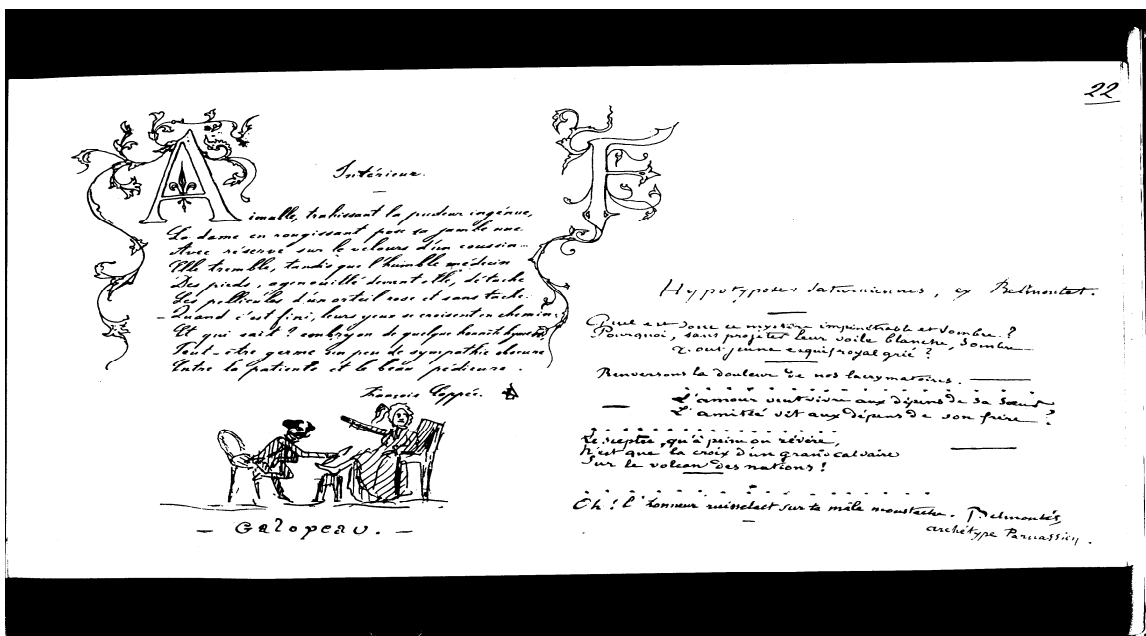 22
Intérieur.
Aimable, trahissant la pudeur ingénue,
La dame en rougissant pose sa jambe nue
Avec réserve sur le velours d'un coussin...
Elle tremble, tandis que l'humble médecin
Des pieds, agenouillé devant elle, détache
Les pellicules d'un orteil rose et sans tache.
— Quand c'est fini, leurs yeux se croisent en chemin:
Et qui sait? embryon de quelque honnête hymen,
Peut-être germe un peu de sympathie obscure
Entre la patiente et le beau pédicure.
François Coppée.
— Galopeau. —
F
Hypotyposes saturniennes, ex Belmontet.
Quel est donc ce mystère impénétrable et sombre?
Pourquoi, sans projeter leur voile blanche, sombre
Tout jeune esquif royal gréé?
Renversons la douleur de nos lacrymatoires.
L'amour veut vivre aux dépens de sa sœur
L'amitié vit aux dépens de son frère
Le sceptre, qu'à peine on révère,
N'est que la croix d'un grand calvaire
Sur le volcan des nations!
Oh! l'honneur ruisselait sur ta mâle moustache. Belmontet,
archétype Parnassien.